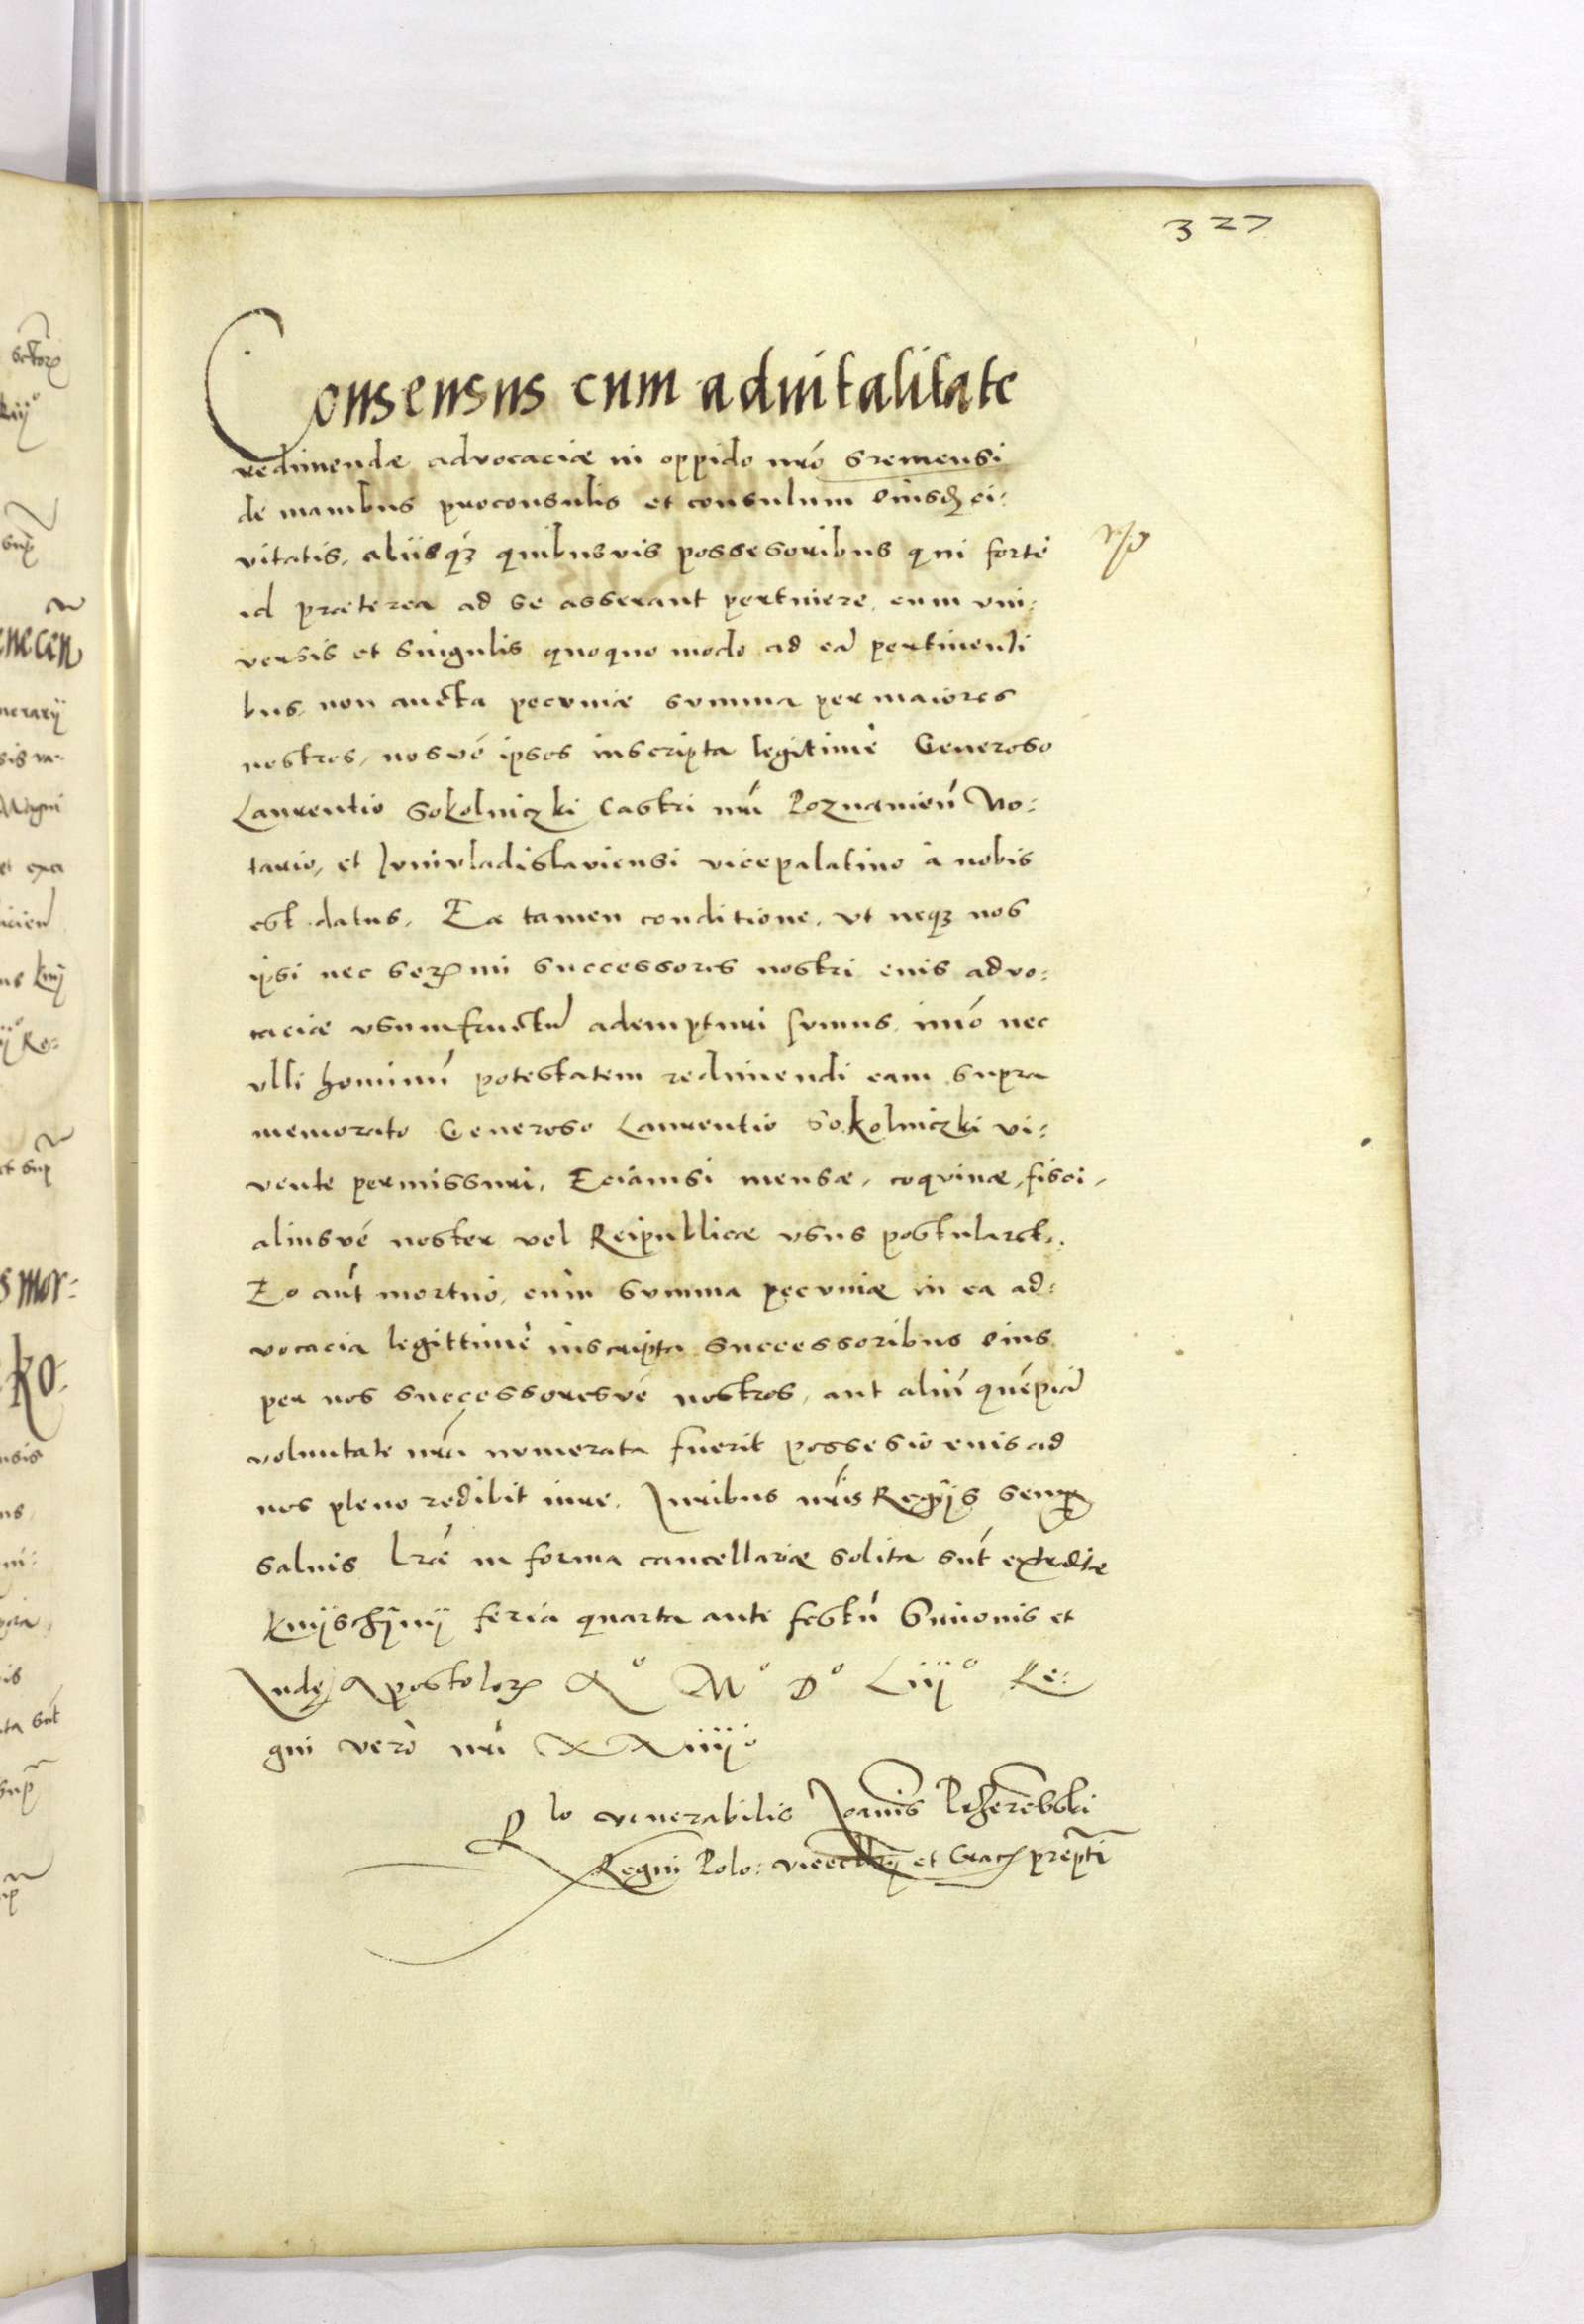 327
Consensus cum advitalitate
redimendæ advocaciæ in oppido nr̃o Sremensi
de manibus proconsulis et consulum eiusdẽ ci:
vitatis, aliisq; quibusvis possesoribus qui fortè
id præterea ad se asserant pertinere, cum vni:
versis et singulis quoquo modo ad eã pertinenti
bus, non aucta pecuniæ summa per maiores
nostros, nosvè ipsos inscripta legitimè Generoso
Laurentio Sokolniczki Castri nr̃i Poznanieñ No:
tario, et Iuniuladislaviensi vicepalatino à nobis
est datus. Ea tamen conditione, vt neq; nos
ipsi nec serᵐⁱ successores nostri euis advo:
caciæ vsumfructũ adempturi sumus, imò nec
vlli hominũ potestatem redimendi eam supra
memorato Generoso Laurentio Sokolniczki vi:
vente permissuri, Eciamsi mensæ, coquinæ, fisci,
aliusvè noster vel Reipublicæ vsus postularet.
Eo aũt mortuo, cum summa pecuniæ in ea ad:
vocacia legittimè inscripta successoribus eius
per nos successoresvè nostros, aut aliũ quẽpiã
voluntate nr̃a numerata fuerit possesio euis ad
nos pleno redibit iure. Iuribus nr̃is Regijs semp
salvis Lr̃æ in forma cancellariæ solita sũt extraditæ
Knijschijnij feria quarta ante festũ Simonis et
Iudę Apostolorꝫ Aº Mº Dº Liijº Re:
gni verò nr̃i XXiiijº
Rlo venerabilis Ioannis Przerembski
Regni Polo: vicecãllrij et Crac prepti